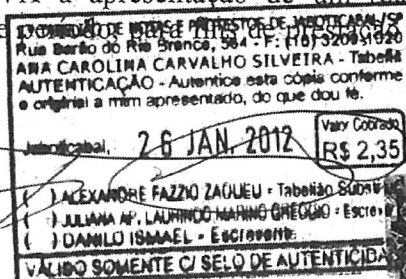 VII a apresentação de um
2º TABELIÃO DE NOTAS E PROTESTOS DE JABOTICABAL/SP
para fins de
Rua Barão do Rio Branco, 564 - F: (16) 3209-1020
ANA CAROLINA CARVALHO SILVEIRA - Tabeliã
AUTENTICAÇÃO - Autentico esta cópia conforme
o original a mim apresentado, do que dou fé.
Jaboticabal, 26 JAN. 2012
Valor Cobrado
R$ 2,35
( ) ALEXANDRE FAZZIO ZAQUEU - Tabelião Substi
( ) JULIANA AP. LAURINDO MARINO GREGGIO - Escreve
( ) DANILO ISMAEL - Escrevente
VÁLIDO SOMENTE C/ SELO DE AUTENTICIDA